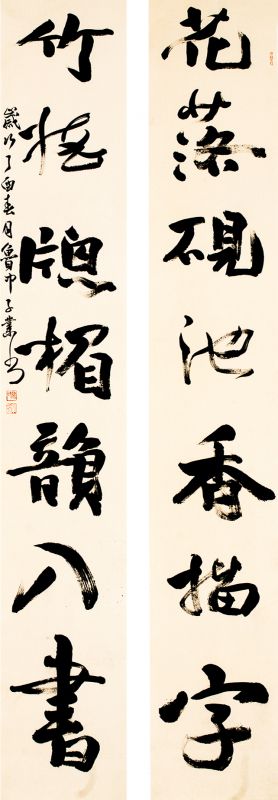 花落硯池香描字
竹搖牕楣韻入書
歲次丁酉春月魯中子業書